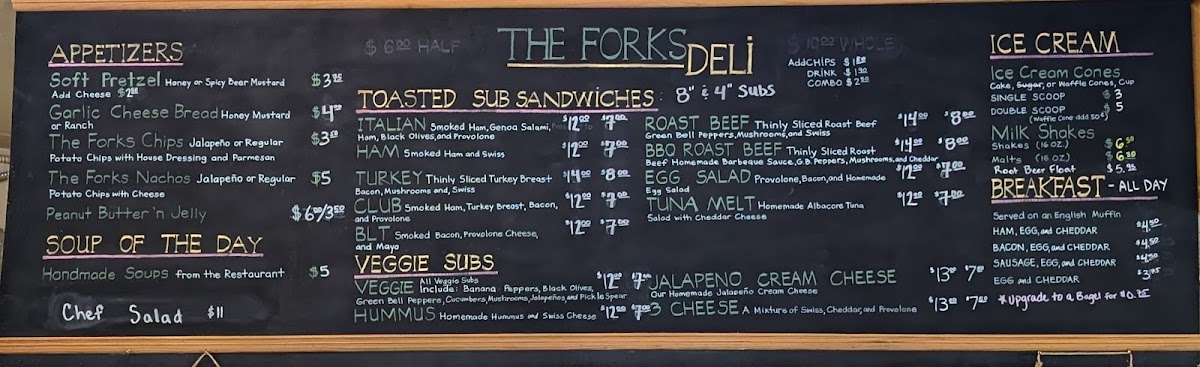 THE FORKS DELI
$6.00 HALF
$10.00 WHOLE
Add CHIPS $1.50
DRINK $1.50
COMBO $2.50
APPETIZERS
Soft Pretzel Honey or Spicy Beer Mustard $3.75
Add Cheese
Garlic Cheese Bread Honey Mustard $4.50
or Ranch
The Forks Chips Jalapeño or Regular $3.50
Potato Chips with House Dressing and Parmesan
The Forks Nachos Jalapeño or Regular $5
Potato Chips with Cheese
Peanut Butter 'n Jelly $6.00/3.50
SOUP OF THE DAY
Handmade Soups from the Restaurant $5
Chef Salad $11
TOASTED SUB SANDWICHES: 8" & 4" Subs
ITALIAN Smoked Ham, Genoa Salami, $12.00 $7.00
Ham, Black Olives, and Provolone
HAM Smoked Ham and Swiss $12.00 $7.00
TURKEY Thinly Sliced Turkey Breast $14.00 $8.00
Bacon, Mushrooms and, Swiss
CLUB Smoked Ham, Turkey Breast, Bacon, $12.00 $7.00
and Provolone
BLT Smoked Bacon, Provolone Cheese, $12.00 $7.00
and Mayo
ROAST BEEF Thinly Sliced Roast Beef $14.00 $8.00
Green Bell Peppers, Mushrooms, and Swiss
BBQ ROAST BEEF Thinly Sliced Roast $14.00 $8.00
Beef Homemade Barbeque Sauce, G.B. Peppers, Mushrooms, and Cheddar
EGG SALAD Provolone, Bacon, and Homemade $12.00 $7.00
Egg Salad
TUNA MELT Homemade Albacore Tuna $12.00 $7.00
Salad with Cheddar Cheese
VEGGIE SUBS
All Veggie Subs
VEGGIE Include: Banana Peppers, Black Olives, $12.00 $7.00
Green Bell Peppers, Cucumbers, Mushrooms, Jalapeños, and Pickle Spear
HUMMUS Homemade Hummus and Swiss Cheese $12.00 $7.00
JALAPENO CREAM CHEESE $13.00 $7.00
Our Homemade Jalapeño Cream Cheese
3 CHEESE A Mixture of Swiss, Cheddar, and Provolone $13.00 $7.00
ICE CREAM
Ice Cream Cones
Cake, Sugar, or Waffle Cones, Cup
SINGLE SCOOP $3
DOUBLE SCOOP $5
(Waffle Cone add 50¢)
Milk Shakes
Shakes (16 OZ.) $6.50
Malts (16 OZ)
Root Beer Float
BREAKFAST - ALL DAY
Served on an English Muffin
HAM, EGG, and CHEDDAR $4.50
BACON, EGG, and CHEDDAR $4.50
SAUSAGE, EGG, and CHEDDAR $4.50
EGG and CHEDDAR $3.95
*Upgrade to a Bagel for $0.75